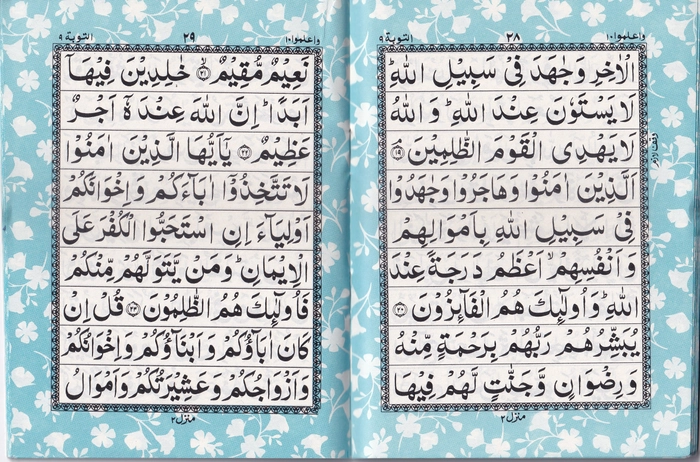 واعلموا ١٠
٢٨
التوبة ٩
الْاٰخِرِ وَجٰهَدَ فِیْ سَبِیْلِ اللّٰهِؕ
لَا یَسْتَوٗنَ عِنْدَ اللّٰهِؕ وَ اللّٰهُ
لَا یَهْدِی الْقَوْمَ الظّٰلِمِیْنَۘ ﴿۱۹﴾
اَلَّذِیْنَ اٰمَنُوْا وَهَاجَرُوْا وَجٰهَدُوْا
فِیْ سَبِیْلِ اللّٰهِ بِاَمْوَالِهِمْ
وَ اَنْفُسِهِمْۙ اَعْظَمُ دَرَجَةً عِنْدَ
اللّٰهِؕ وَ اُولٰٓىِٕكَ هُمُ الْفَآىِٕزُوْنَ ﴿۲۰﴾
یُبَشِّرُهُمْ رَبُّهُمْ بِرَحْمَةٍ مِّنْهُ
وَ رِضْوَانٍ وَّجَنّٰتٍ لَّهُمْ فِیْهَا
منزل ٢
واعلموا ١٠
٢٩
التوبة ٩
نَعِیْمٌ مُّقِیْمٌۙ ﴿۲۱﴾ خٰلِدِیْنَ فِیْهَاۤ
اَبَدًاؕ اِنَّ اللّٰهَ عِنْدَهٗۤ اَجْرٌ
عَظِیْمٌ ﴿۲۲﴾ یٰۤاَیُّهَا الَّذِیْنَ اٰمَنُوْا
لَا تَتَّخِذُوْۤا اٰبَآءَكُمْ وَ اِخْوَانَكُمْ
اَوْلِیَآءَ اِنِ اسْتَحَبُّوا الْكُفْرَ عَلَی
الْاِیْمَانِؕ وَ مَنْ یَّتَوَلَّهُمْ مِّنْكُمْ
فَاُولٰٓىِٕكَ هُمُ الظّٰلِمُوْنَ ﴿۲۳﴾ قُلْ اِنْ
كَانَ اٰبَآؤُكُمْ وَ اَبْنَآؤُكُمْ وَ اِخْوَانُكُمْ
وَ اَزْوَاجُكُمْ وَ عَشِیْرَتُكُمْ وَ اَمْوَالُ
منزل ٢